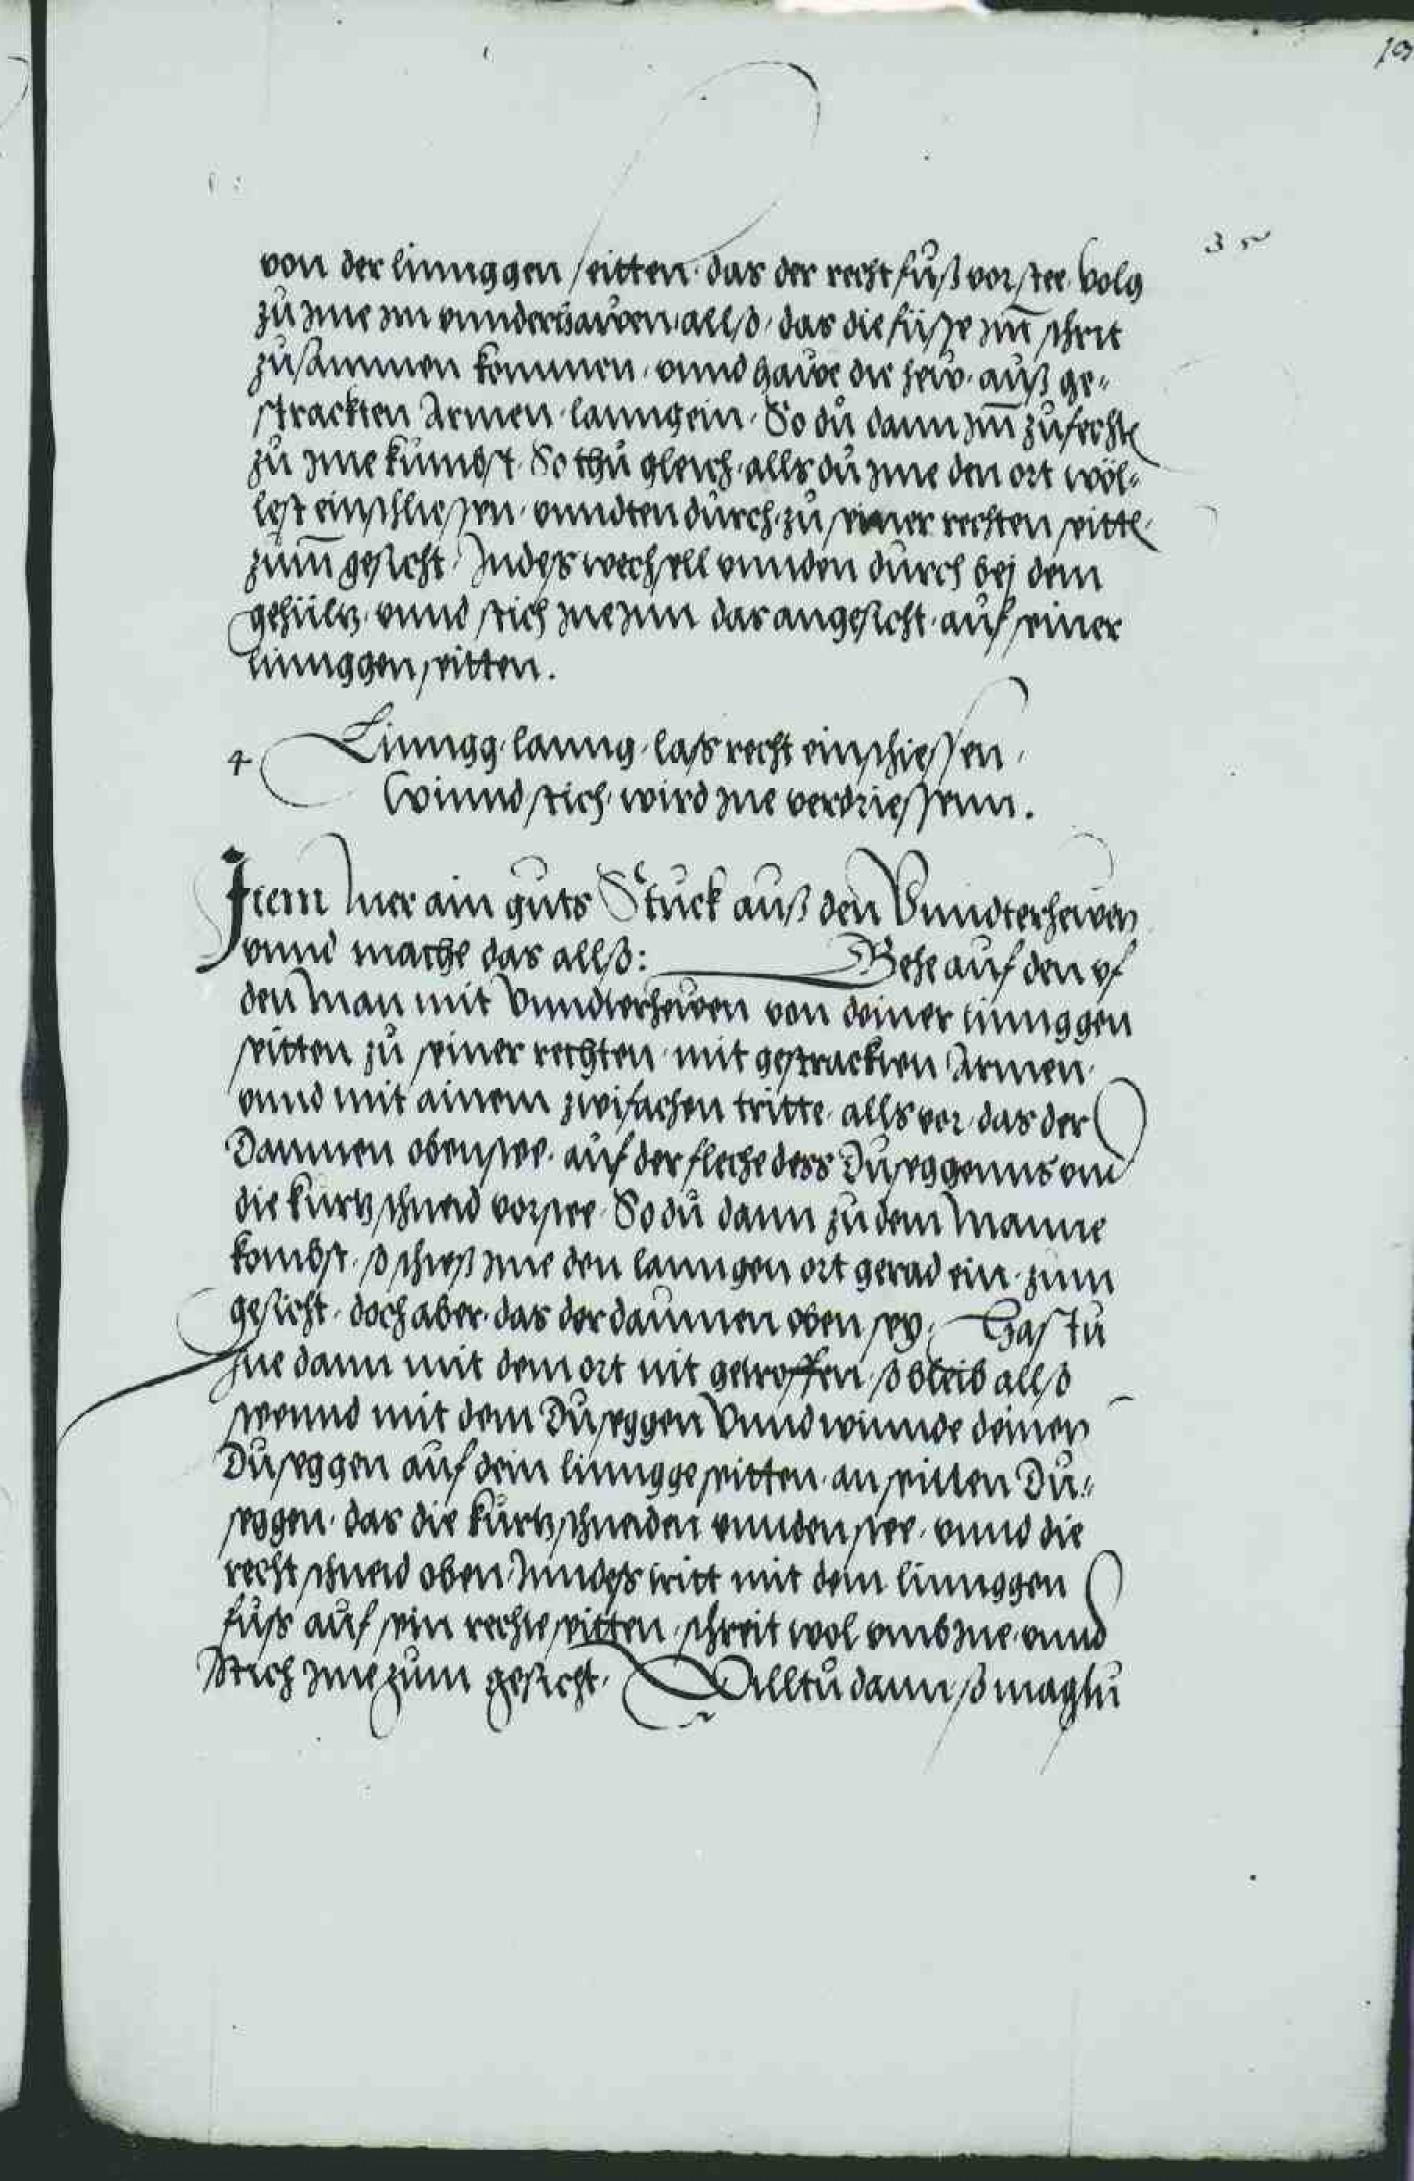 35
von der linnggen seitten, das der recht fuß vor stee. Volg
zu ime im vnnderhauen, allso, das die füsse im schrit
zusammen kommen, vnnd haue die heiv, auß ge-
strackten Armen, lanng ein. So du dann im zufechten
zu ime kumbst. So thu gleich, alls du ime den ort wöl-
lest einschliessen, vnndten durch, zu seiner rechten seitten
zum gesicht, Indes wechsell vnnden durch bej dem
gehültz, vnnd stich ime inn das angesicht, auf seiner
linnggen seitten.
4 Linngg, lanng, lass recht einschiessen,
Winnd stich, wird ine verdriessenn.
Item Mer ain guts Stuck auß den Vnndterheiven
vnnd mache das allso: Gehe auf den uf
den Man mit Vnndterheiven von deiner linnggen
seitten zu seiner rechten, mit gestrackten Armen,
vnnd mit ainem zwifachen tritte, alls vor, das der
Daumen oben stee, auf der fleche dess Duseggenns vnd
die kurtz schneid vorstee. So du dann zu dem Manne
kombst, so schiess ime den lanngen ort gerad ein, zum
gesicht, doch aber, das der daumen oben sey, Hastu
ine dann mit dem ort nit getroffen, so bleib allso
steennd mit dem Duseggen Vnnd winnde deinen
Duseggen auf dein linngge seitten, an seinen Du-
seggen, das die kurtz schneiden vnnden stee, vnnd die
recht schneid oben, Inndess tritt mit dem linnggen
fuss auf sein rechte seitten, schreit wol vmb ine, vnnd
Stich ime zum gesicht, Willtu dann so magstu